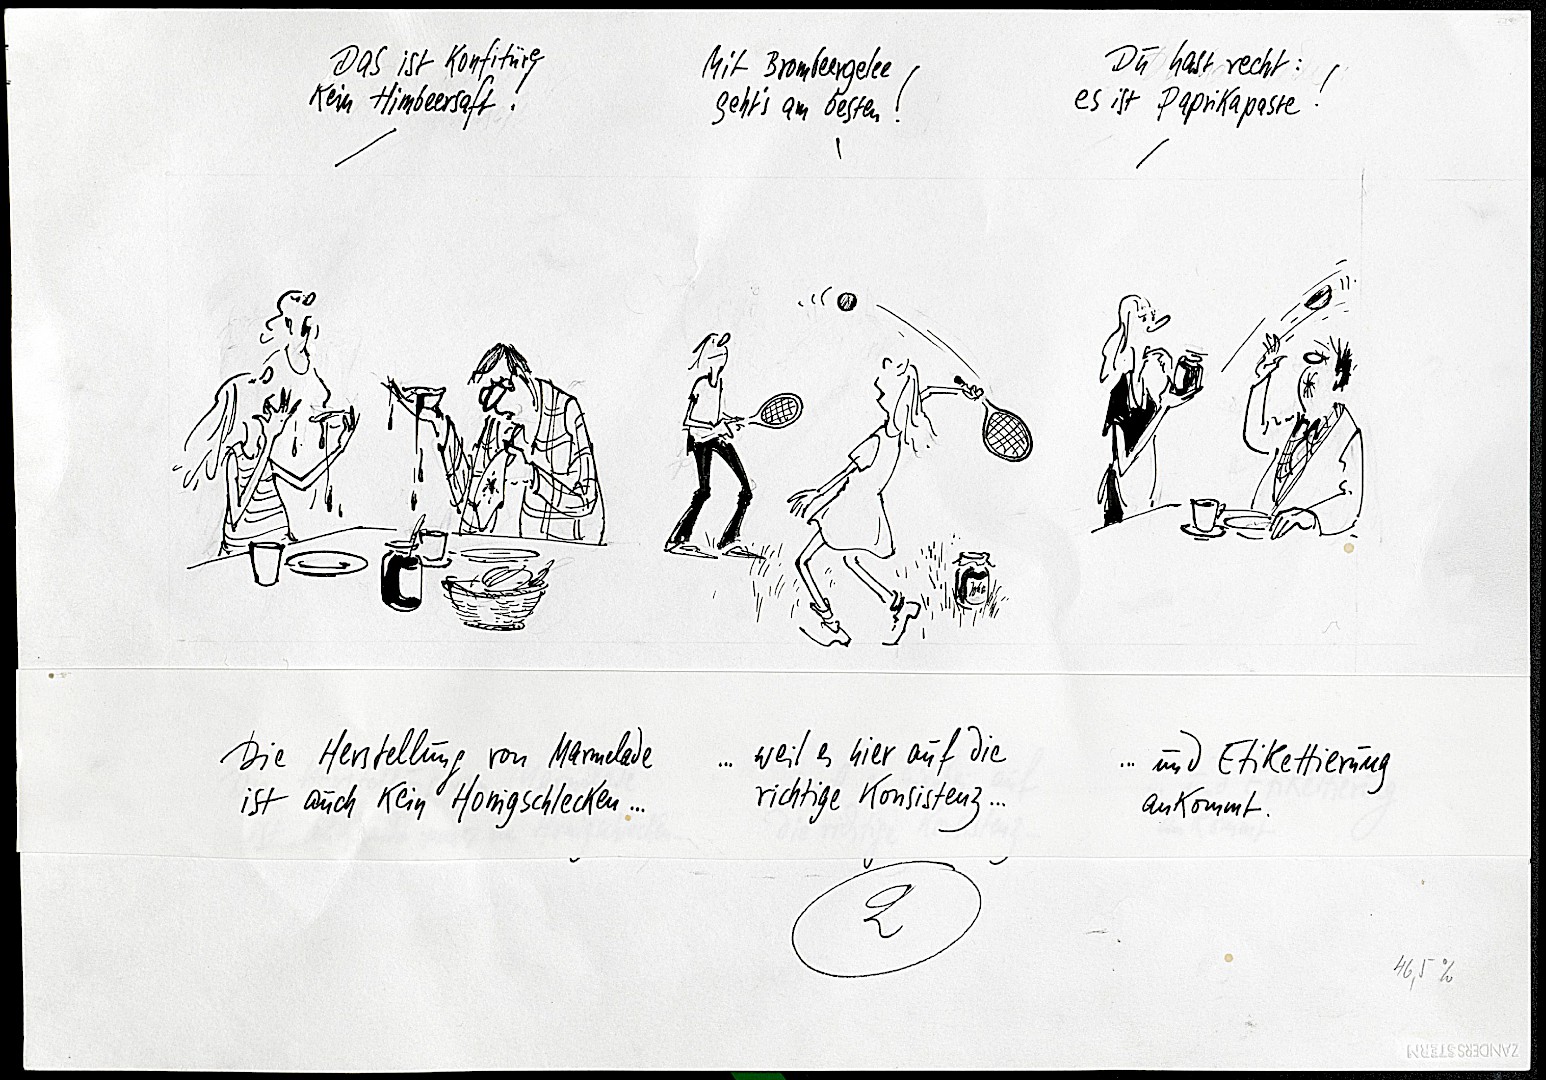 Das ist Konfitüre
Kein Himbeersaft!
Mit Brombeergelee
geht's am besten!
Du hast recht:
es ist Paprikapaste!
Die Herstellung von Marmelade
ist auch Kein Honigschlecken...
... weil es hier auf die
richtige Konsistenz...
... und Etikettierung
ankommt.
2
46,5%
ZANDERS STERN